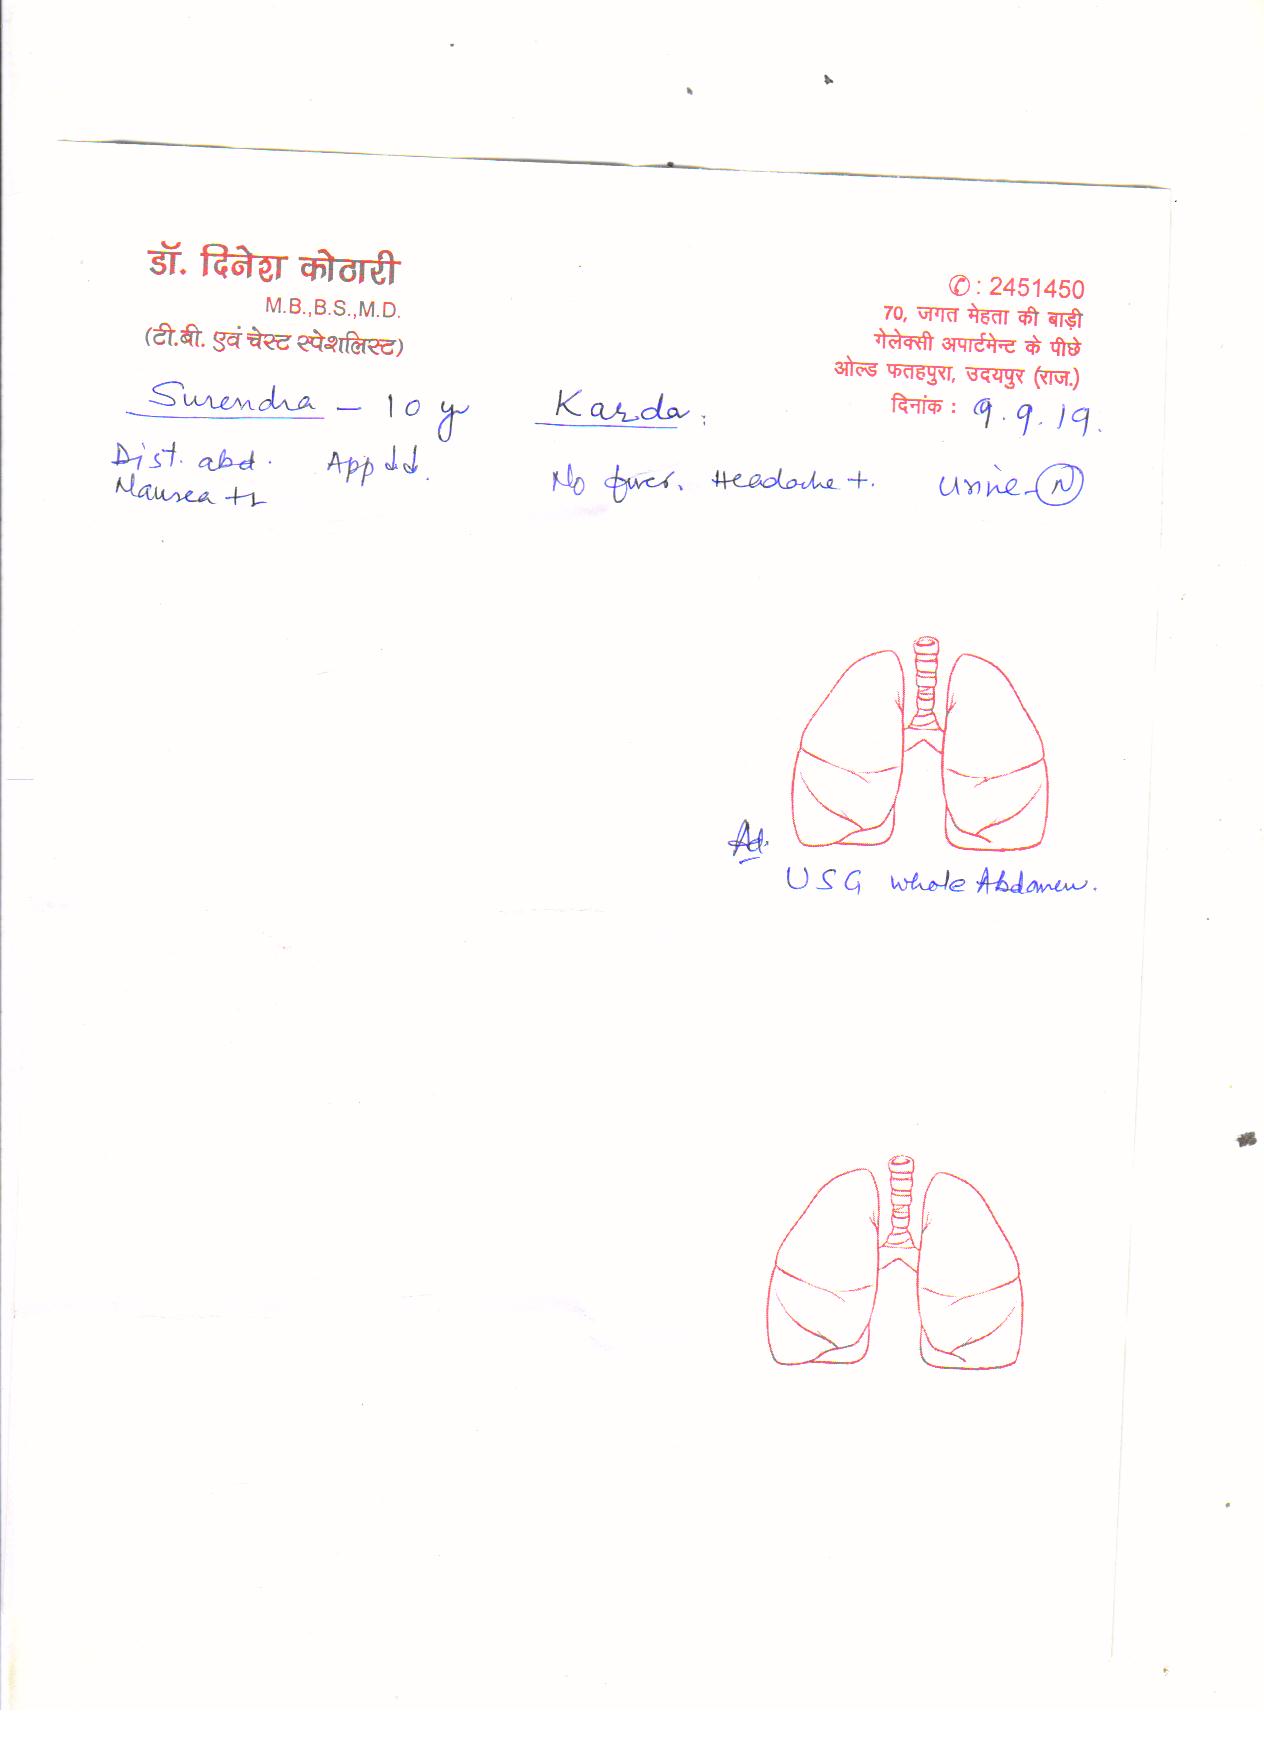 डॉ. दिनेश कोठारी
M.B.,B.S.,M.D.
(टी.बी. एवं चेस्ट स्पेशलिस्ट)
✆ : 2451450
70, जगत मेहता की बाड़ी
गेलेक्सी अपार्टमेन्ट के पीछे
ओल्ड फतहपुरा, उदयपुर (राज.)
दिनांक : 9.9.19.
Surendra – 10 yr Karda.
Dist. abd. App ↓↓. No fever. Headache +. Urine - N
Nausea ++
Ad.
USG whole Abdomen.